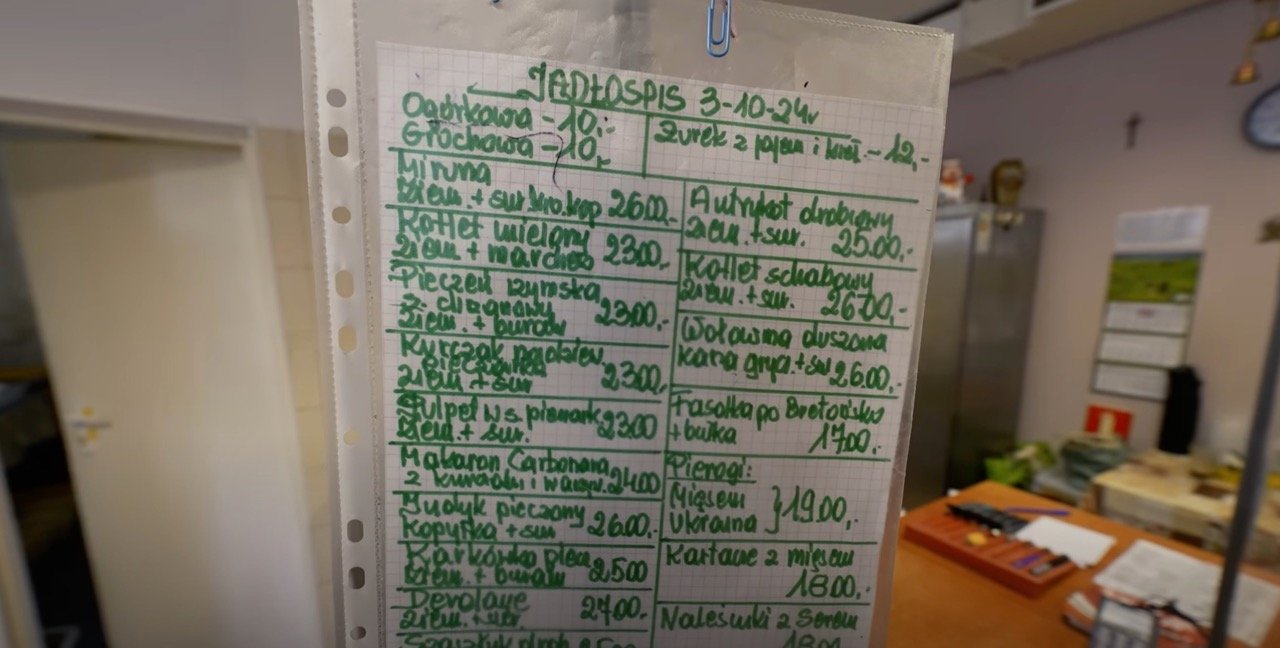 JADŁOSPIS 3-10-24r
Ogórkowa - 10,-
Grochowa - 10,-
Żurek z jajem i kieł. - 12,-
Miruna
ziem. + sur. kw. kap 26.00,-
Kotlet mielony
ziem. + marchew 23.00,-
Pieczeń rzymska
ziem. + buraki 23.00,-
Kurczak nadziew.
ziem. + sur 23.00,-
Pulpet w s. pieczark.
ziem. + sur. 23.00
Makaron Carbonara
z kurczak. i warzyw. 24.00
Indyk pieczony
Kopytka + sur 26.00,-
Karkówka piecz
ziem. + buraki 25.00
Devolaye
ziem. + sur. 27.00,-
Autrykot drobiowy
ziem. + sur. 25.00,-
Kotlet schabowy
ziem. + sur. 26.00,-
Wołowina duszona
kasza gryz. + sur 26.00,-
Fasolka po Bretońsku
+ bułka 17.00,-
Pierogi:
Mięsem
Ukraina } 19.00,-
Kartacze z mięsem
18.00,-
Naleśniki z Serem